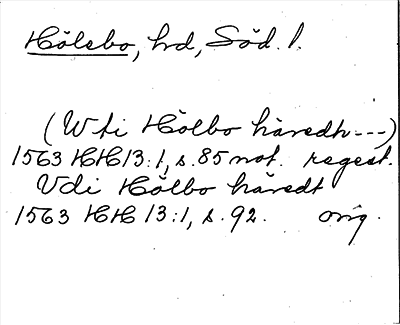 Hölebo, hd, Söd. l.
(Wti Hölbo häredh---)
1563 HH 13:1, s. 85 not. regest.
Vdi Hölbo häredt
1563 HH 13:1, s. 92. orig.